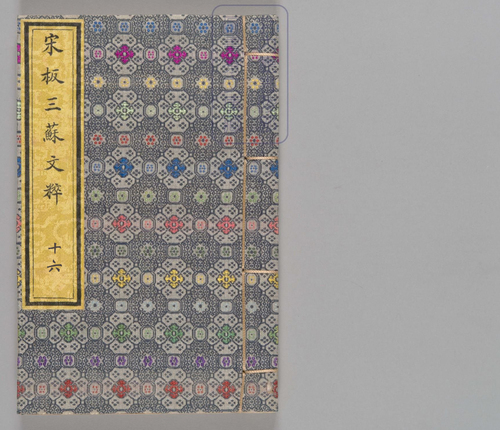 宋板三蘇文粹
十六